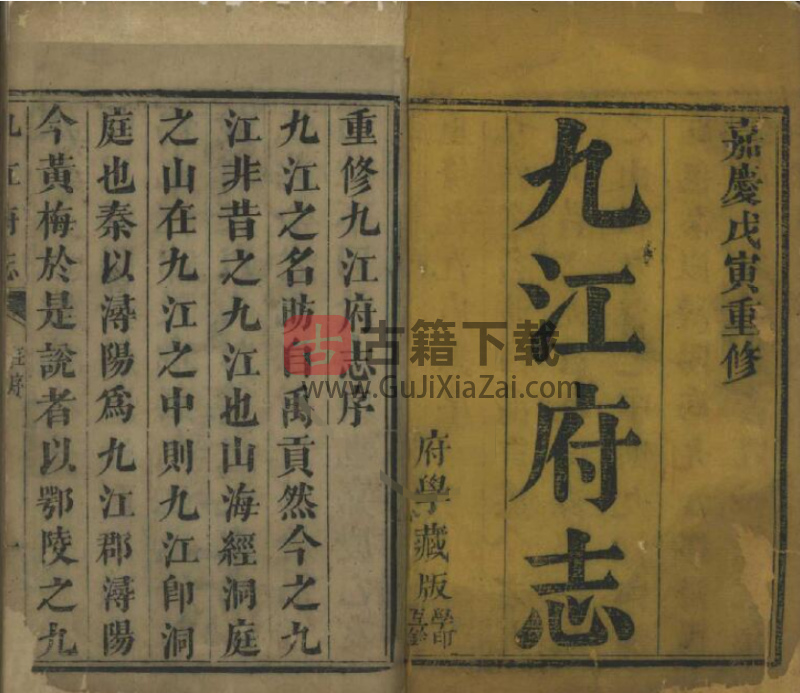 嘉慶戊寅重修
九江府志
府學藏版
重修九江府志序
九江之名昉自禹貢然今之九
江非昔之九江也山海經洞庭
之山在九江之中則九江卽洞
庭也秦以潯陽爲九江郡潯陽
今黃梅於是說者以鄂陵之九
九江府志
序
古籍下载
www.GuJiXiaZai.com